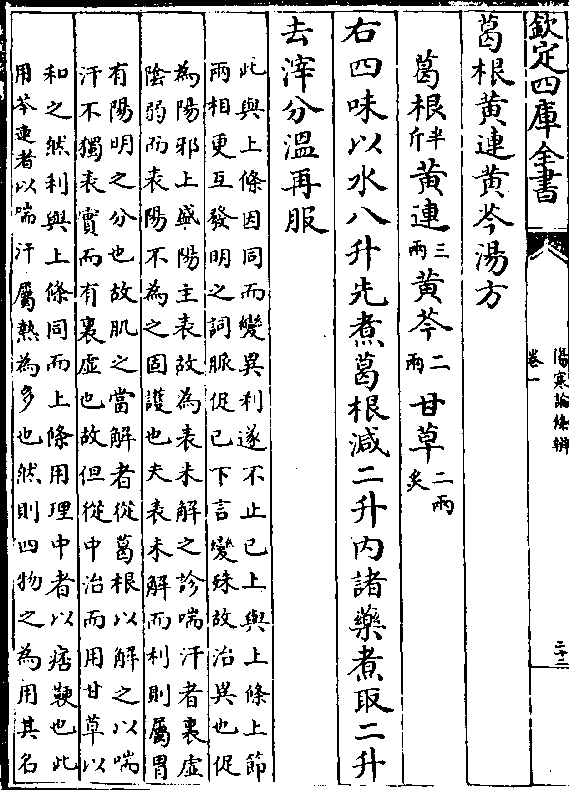 欽定四庫全書
傷寒論條辨
卷一
二十二
葛根黃連黃芩湯方
葛根半斤黃連三兩黃芩二兩甘草二兩炙
右四味以水八升先煮葛根減二升內諸藥煮取二升
去滓分溫再服
此與上條因同而變異利遂不止已上與上條上節
兩相更互發明之詞脈促已下言變殊故治異也促
為陽邪上盛陽主表故為表未解之診喘汗者裏虛
陰弱而表陽不為之固護也夫表未解而利則屬胃
有陽明之分也故肌之當解者從葛根以解之以喘
汗不獨表實而有裏虛也故但從中治而用甘草以
和之然利與上條同而上條用理中者以痞鞕也此
用芩連者以喘汗屬熱為多也然則四物之為用其名